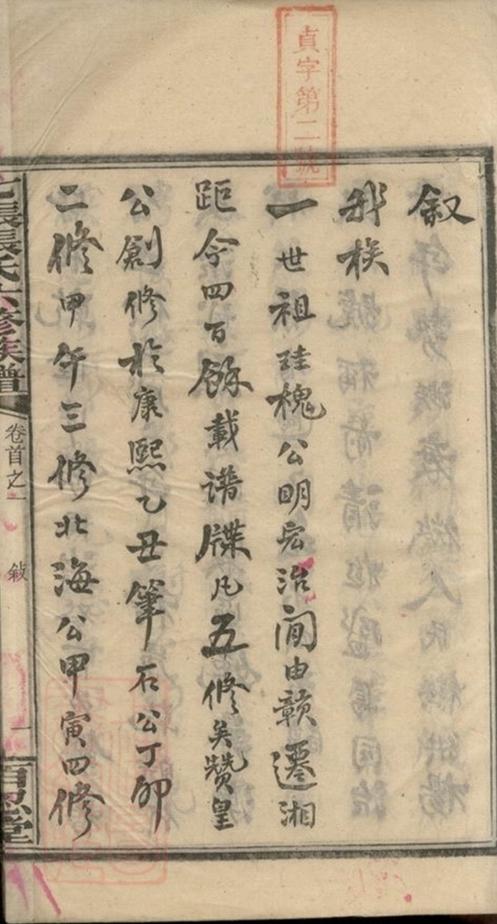 貞字第二號
叙
我族
一世祖珪槐公明宏治间由赣遷湘
距今四百餘載谱牒凡五修矣赞皇
公創修於康熙乙丑筆石公丁卯
二修甲午三修北海公甲寅四修
張氏六修族譜
卷首之一
敍
一
百忍堂